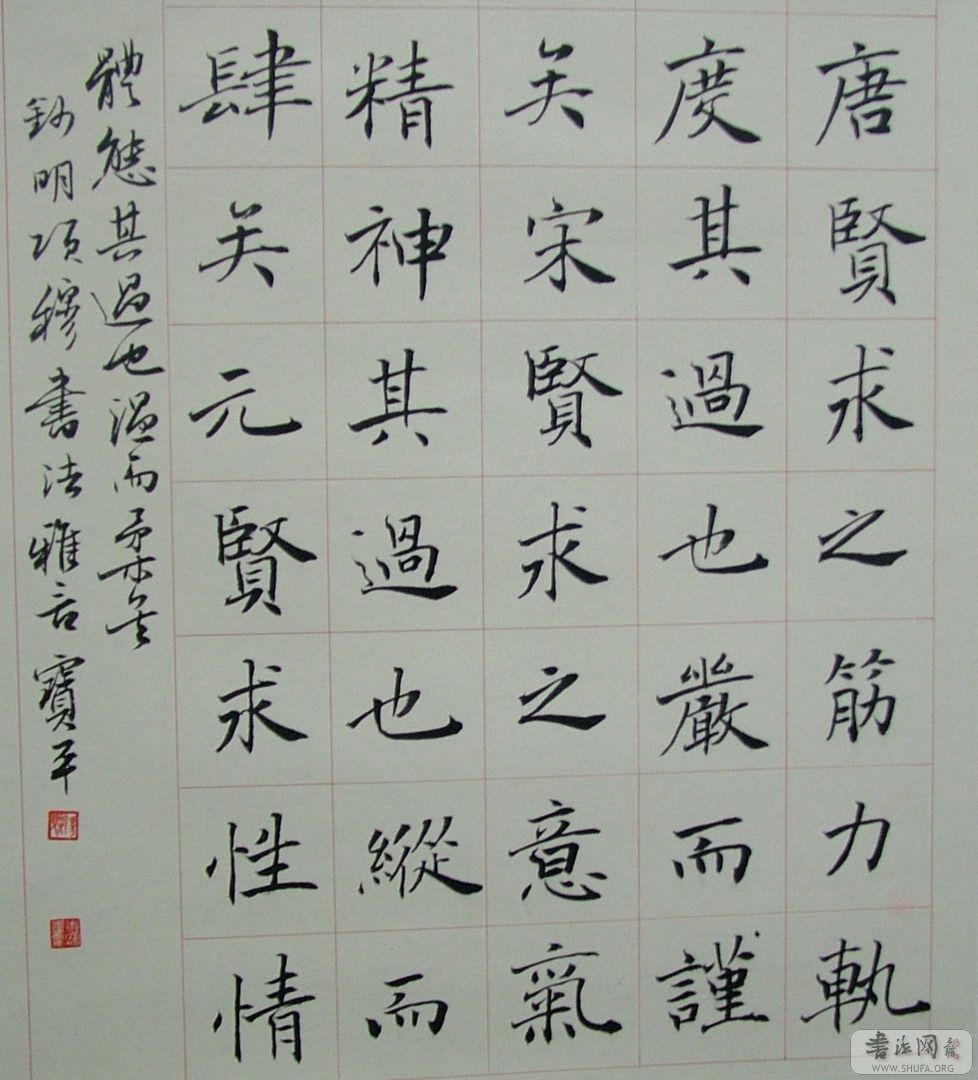 唐賢求之筋力軌
度其過也嚴而謹
矣宋賢求之意氣
精神其過也縱而
肆矣元賢求性情
體態其過也温而柔矣
鈔明項穆書法雅言寶平
书法网
WWW.SHUFA.ORG